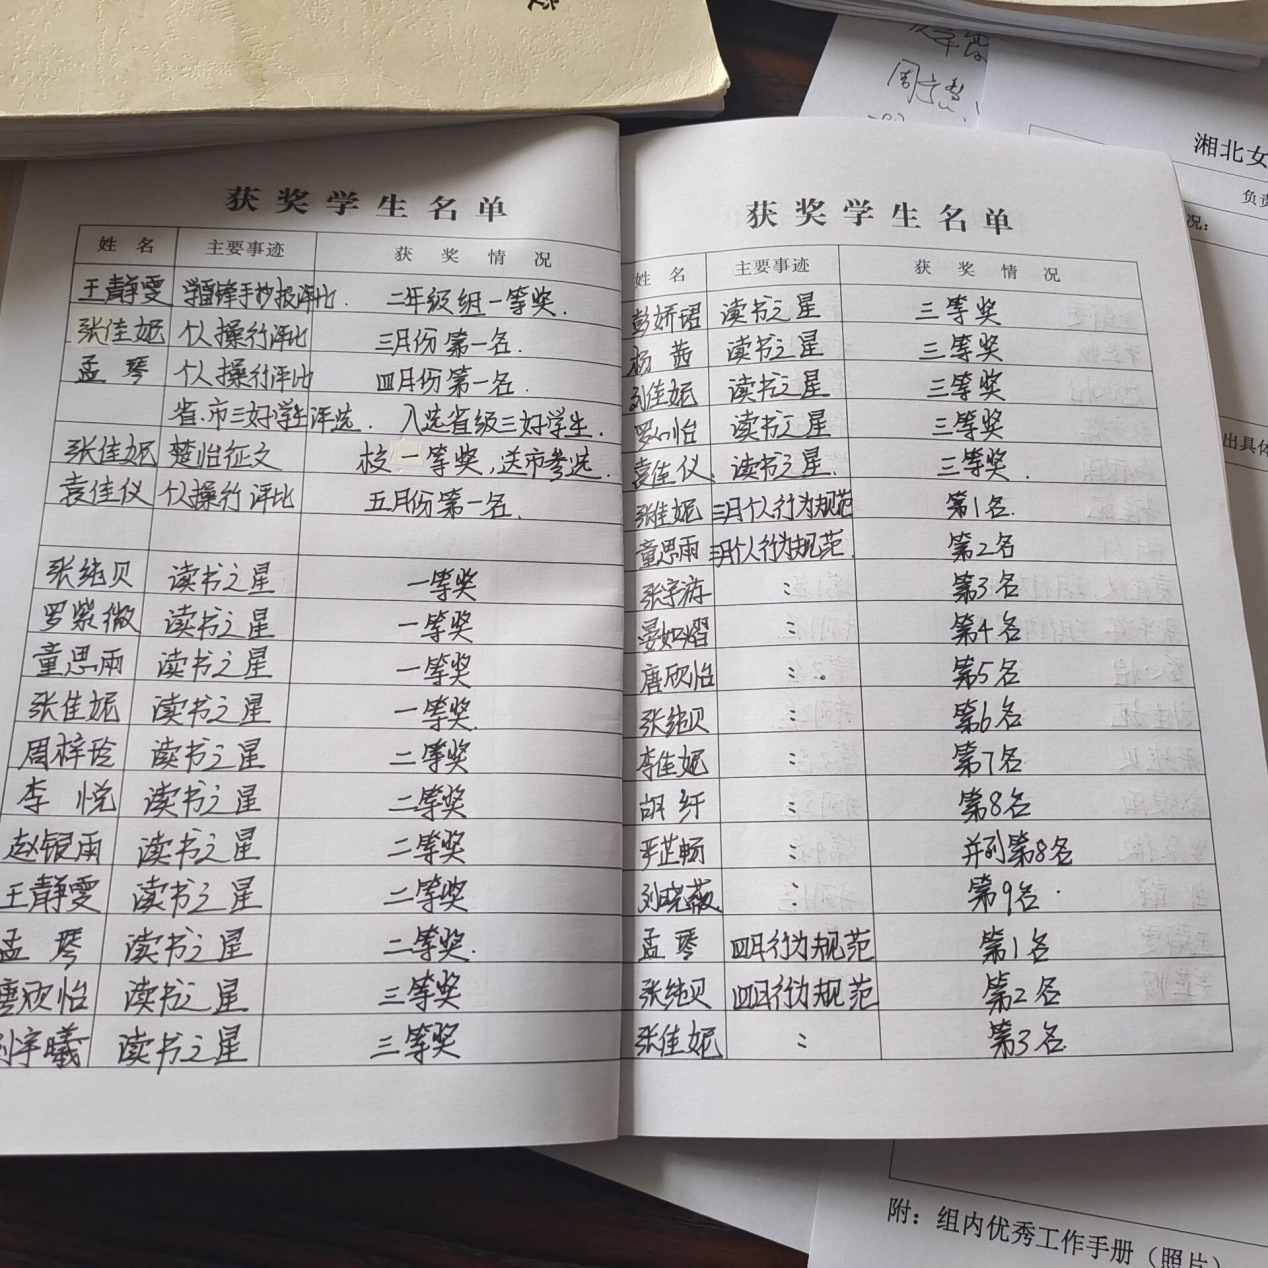 周立慧
湘北女
负责
况:
出具体
获奖学生名单
姓名 主要事迹 获奖情况
王静雯 学雷锋手抄报评比. 二年级组一等奖.
张佳妮 个人操行评比 三月份第一名.
孟琴 个人操行评比 四月份第一名.
省.市三好学生评选. 入选省级三好学生.
张佳妮 楚怡征文 校一等奖,送市参选.
袁佳仪 个人操行评比 五月份第一名.
张纯贝 读书之星 一等奖
罗紫微 读书之星 一等奖
童思雨 读书之星 一等奖
张佳妮 读书之星 一等奖.
周梓玲 读书之星 二等奖
李悦 读书之星 二等奖
赵银雨 读书之星 二等奖
王静雯 读书之星 二等奖
孟琴 读书之星 二等奖.
唐欣怡 读书之星 三等奖
宇曦 读书之星 三等奖
获奖学生名单
姓名 主要事迹 获奖情况
彭娇珺 读书之星 三等奖
杨茜 读书之星 三等奖
刘佳妮 读书之星 三等奖
罗心怡 读书之星 三等奖
袁佳仪. 读书之星. 三等奖.
张佳妮 三月个人行为规范 第1名.
童思雨 三月个人行为规范. 第2名
张宇游 : 第3名
晏如熠 : 第4名
唐欣怡 : 第5名
张纯贝 : 第6名
李佳妮 : 第7名
胡纤 : 第8名
严芷畅 : 并列第8名
刘晓薇 : 第9名.
孟琴 四月行为规范 第1名
张纯贝 四月行为规范 第2名
张佳妮 : 第3名
附：组内优秀工作手册（照片）